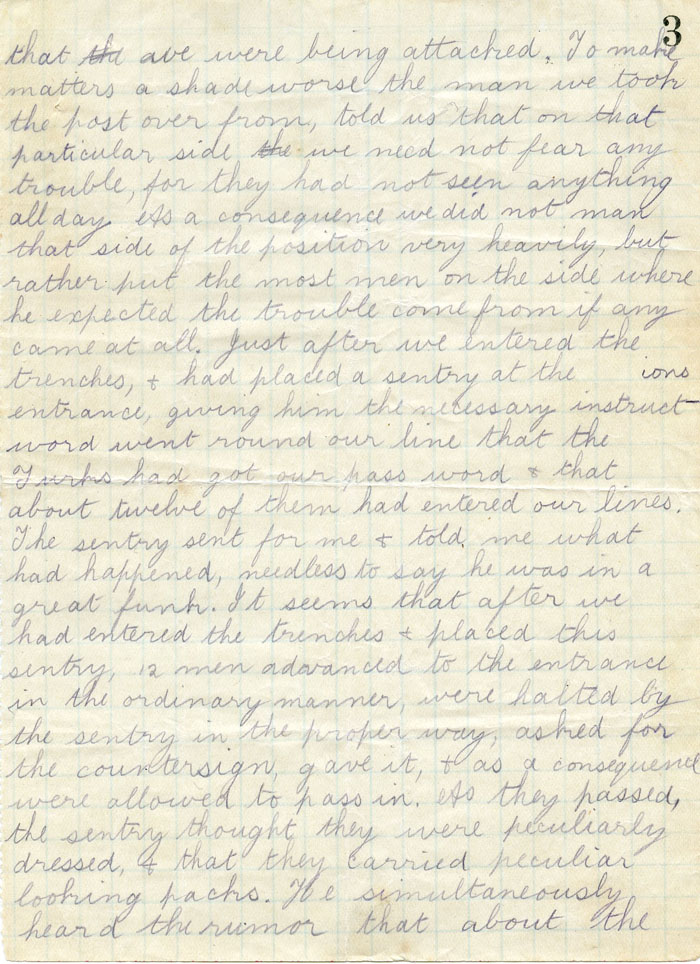 3
that the ave were being attacked. To make
matters a shade worse the man we took
the post over from, told us that on that
particular side the we need not fear any
trouble, for they had not seen anything
all day. As a consequence we did not man
that side of the position very heavily, but
rather put the most men on the side where
he expected the trouble come from if any
came at all. Just after we entered the
trenches, & had placed a sentry at the ions
entrance, giving him the necessary instruct
word went round our line that the
Turks had got our pass word & that
about twelve of them had entered our lines.
The sentry sent for me & told me what
had happened, needless to say he was in a
great funk. It seems that after we
had entered the trenches & placed this
sentry, 12 men advanced to the entrance
in the ordinary manner, were halted by
the sentry in the proper way, asked for
the countersign, gave it, & as a consequence
were allowed to pass in. As they passed,
the sentry thought they were peculiarly
dressed, & that they carried peculiar
looking packs. He simultaneously
heard the rumor that about the